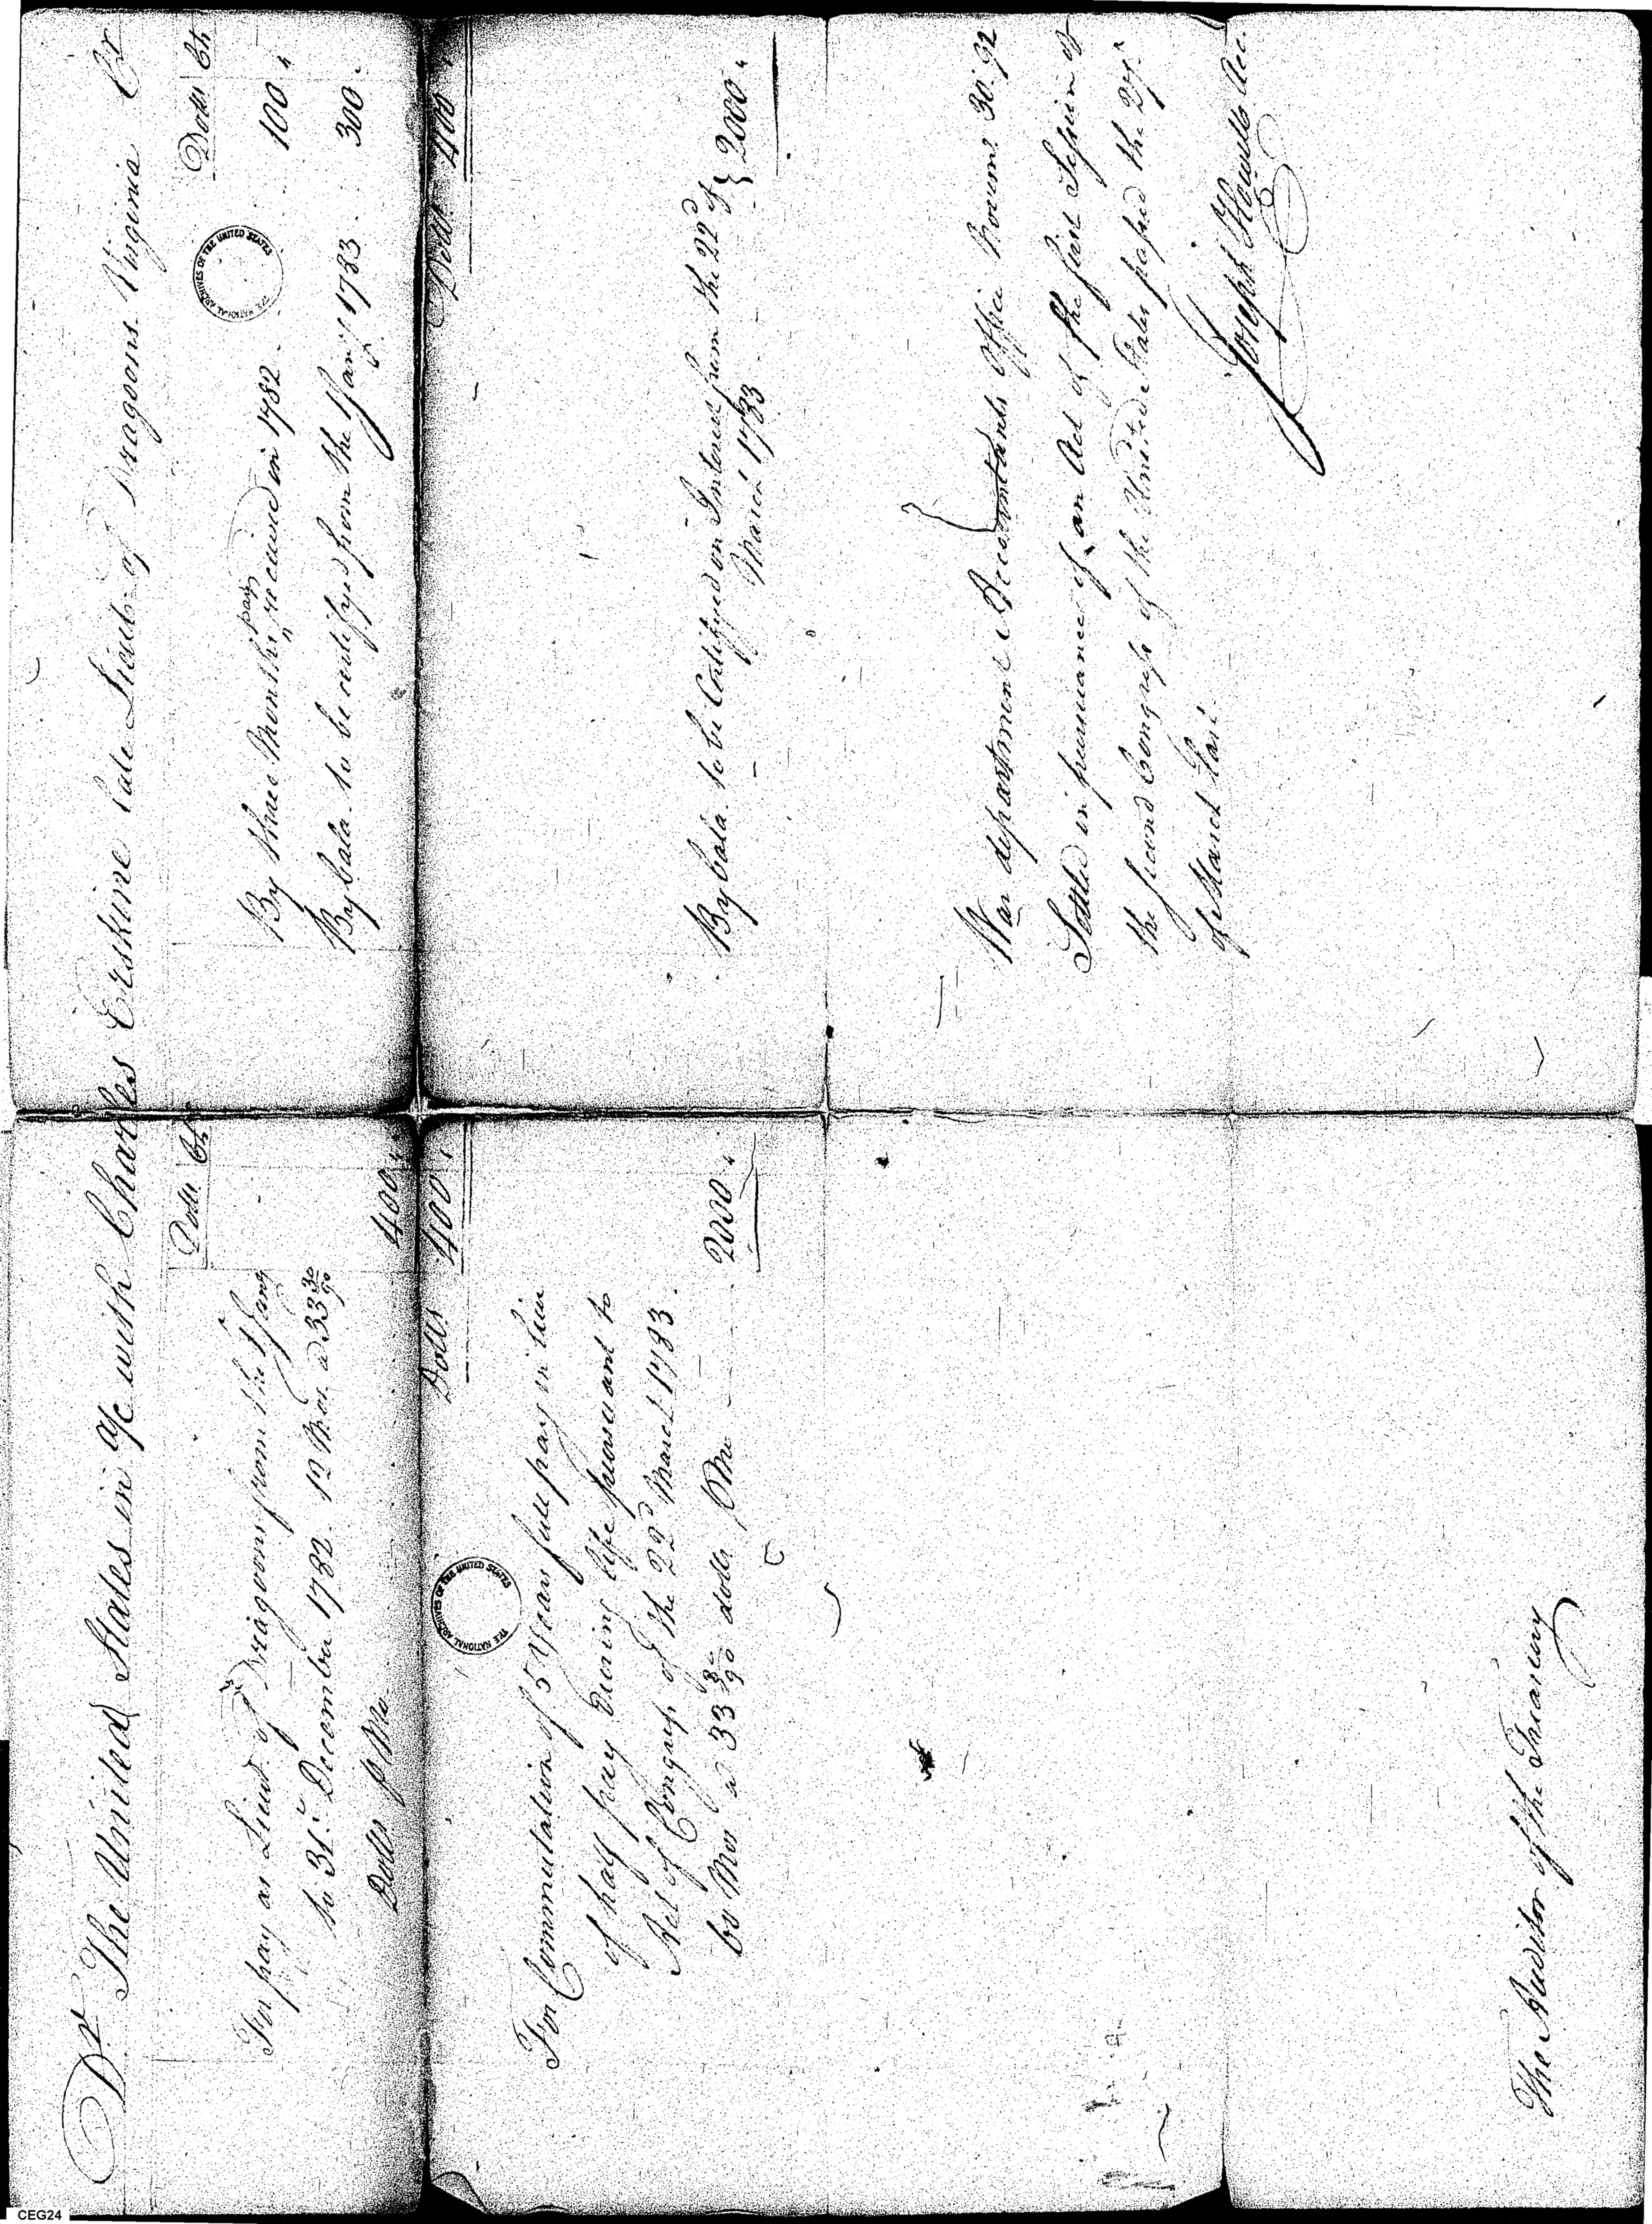 Dr. The United States in a/c with Charles Erskine late Lieut. of Dragoons Virginia Cr
Dolls Cts
For pay as Lieut. of Dragoons from the 1st Jany
to 31st December 1782. 12 Mos. a 33 30/90
Dolls p Mo. 400 "
Dolls 400 "
For Commutation of 5 Years full pay in lieu
of half pay during life pursuant to
Act of Congress of the 22d March 1783.
60 Mos a 33 30/90 dolls p Mo 2000 "
The Auditor of the Treasury
Dolls Cts
By three Months pay received in 1782. 100 "
By bala. to be certifyed from the 1 Jany 1783. 300 "
Dolls. 400 "
By bala. to be Certifyed on Interest from the 22d of } 2000 "
March 1783
War department Accountants Office Novemr. 30. 92
Settled in pursuance of an Act of the first Session of
the second Congress of the United States passed the 27th
of March last.
Joseph Howell Acc.
THE NATIONAL ARCHIVES OF THE UNITED STATES
THE NATIONAL ARCHIVES OF THE UNITED STATES
CEG24